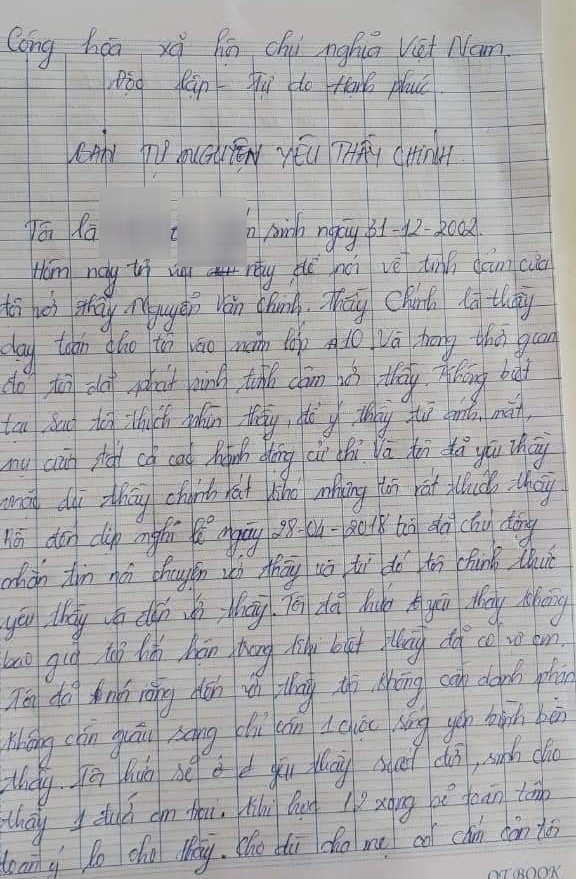 Cộng hòa xã hội chủ nghĩa Việt Nam.
Độc lập - Tự do Hạnh phúc
BẢN TỰ NGUYỆN YÊU THẦY CHINH.
Tôi là sinh ngày 31-12-2002.
Hôm nay tôi này để nói về tình cảm của
tôi với thầy Nguyễn Văn Chinh. Thầy Chinh là thầy
dạy toán cho tôi vào năm lớp 10. Và trong thời gian
đó tôi đã phát sinh tình cảm với thầy. Không biết
tại sao tôi thích nhìn thầy, để ý thầy từ ánh mắt,
nụ cười tất cả các hành động cử chỉ. Và tôi đã yêu thầy
mặc dù thầy chinh rất khó nhưng tôi rất thích thầy.
đến dịp nghỉ lễ ngày 28-04-2018 tôi đã chủ động
nhắn tin nói chuyện với thầy và từ đó tôi chính thức
yêu thầy và đến với thầy. Tôi đã hứa yêu thầy không
bao giờ tôi hối hận trong khi biết thầy đã có vợ con.
Tôi đã rằng đến với thầy tôi không cần danh phận
không cần giàu sang chỉ cần 1 cuộc sống yên bình bên
thầy. Tôi hứa sẽ ở yêu thầy suốt đời, sinh cho
thầy 1 đứa con trai. Khi học 12 xong sẽ toàn tâm
toàn ý lo cho thầy. Cho dù cha mẹ có cấm cản tôi
OT.BOOK